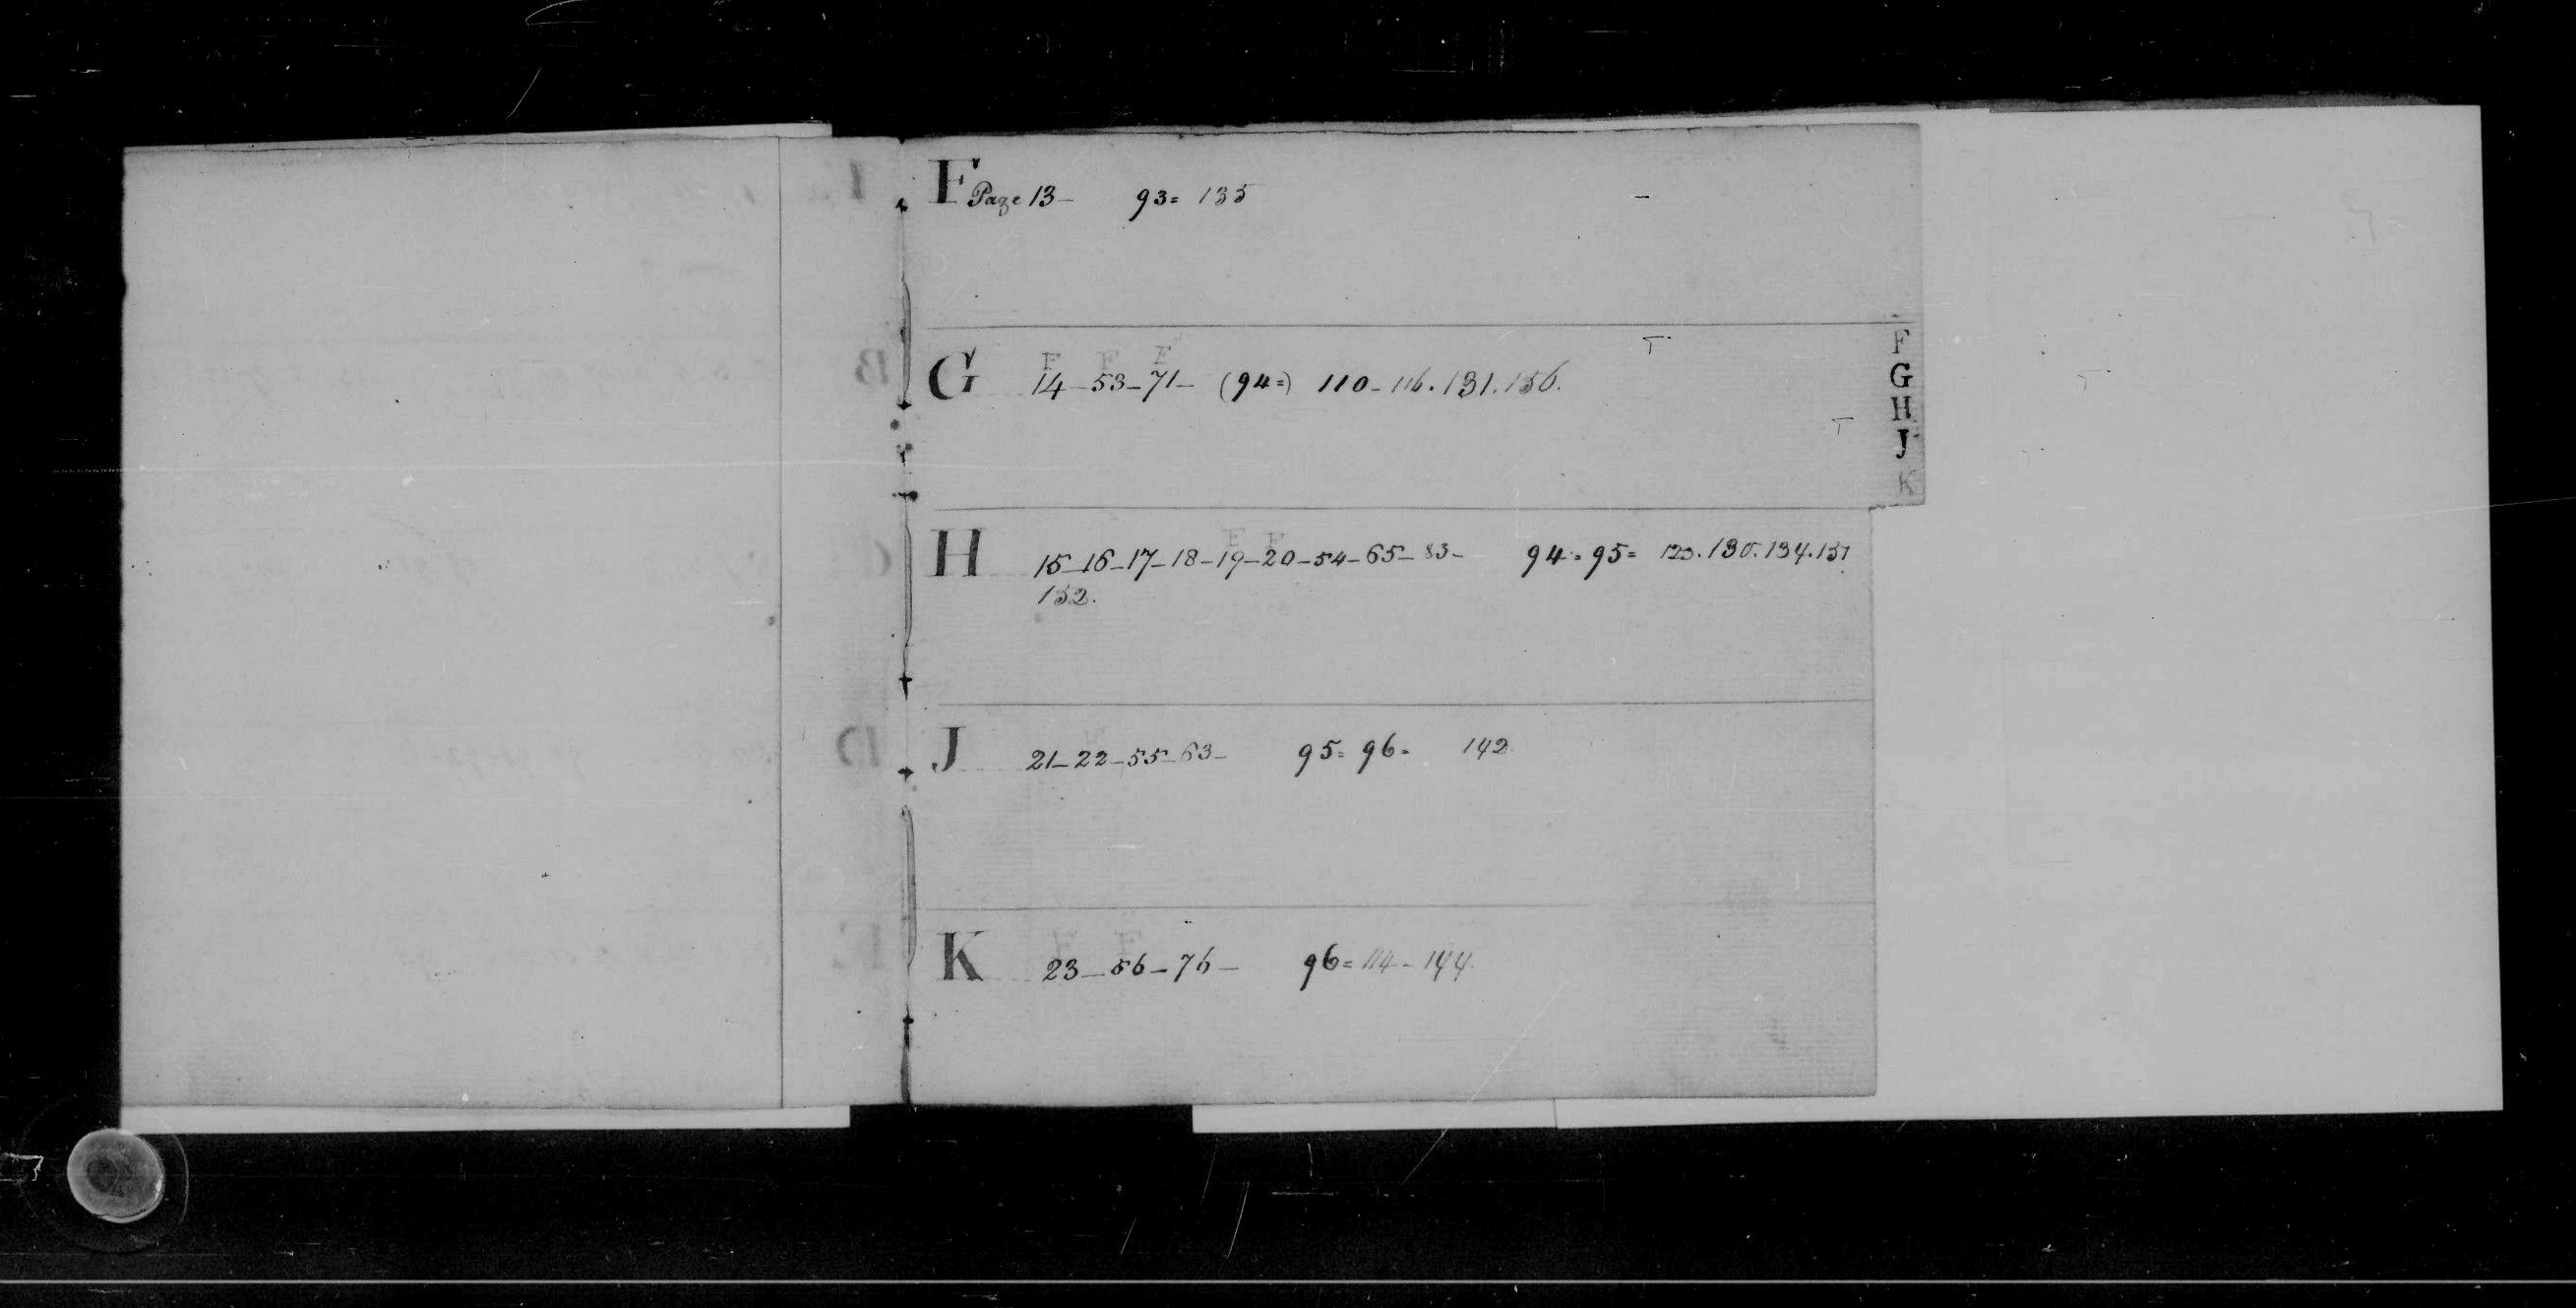 F Page 13- 93= 135
F F F
G 14-53-71- (94=) 110-116.131.156.
F F
H 15-16-17-18-19-20-54-65-83- 94=95= 123.130.134.137
152.
J 21-22-55-63- 95=96= 142
F F
K 23-56-76- 96=114-144.
F
G
H
J
K